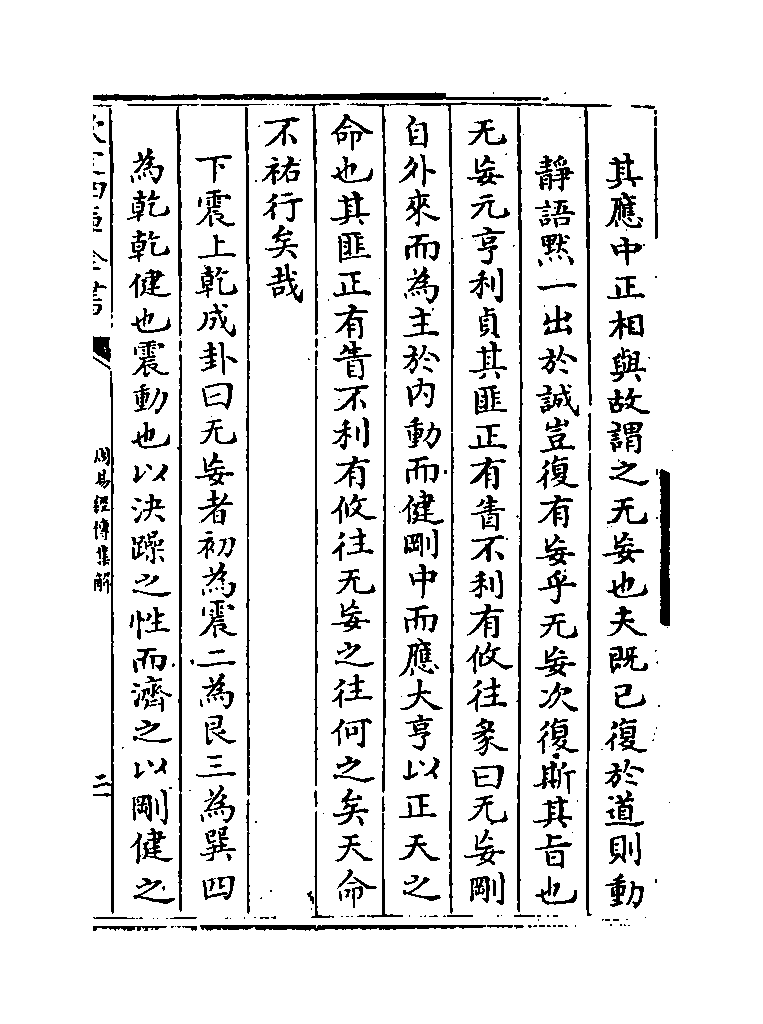 其應中正相與故謂之无妄也夫既已復於道則動
靜語黙一出於誠豈復有妄乎无妄次復斯其旨也
无妄元亨利貞其匪正有眚不利有攸往彖曰无妄剛
自外來而為主於内動而健剛中而應大亨以正天之
命也其匪正有眚不利有攸往无妄之往何之矣天命
不祐行矣哉
下震上乾成卦曰无妄者初為震二為艮三為巽四
為乾乾健也震動也以決躁之性而濟之以剛健之
欽定四庫全書
周易經傳集解
二